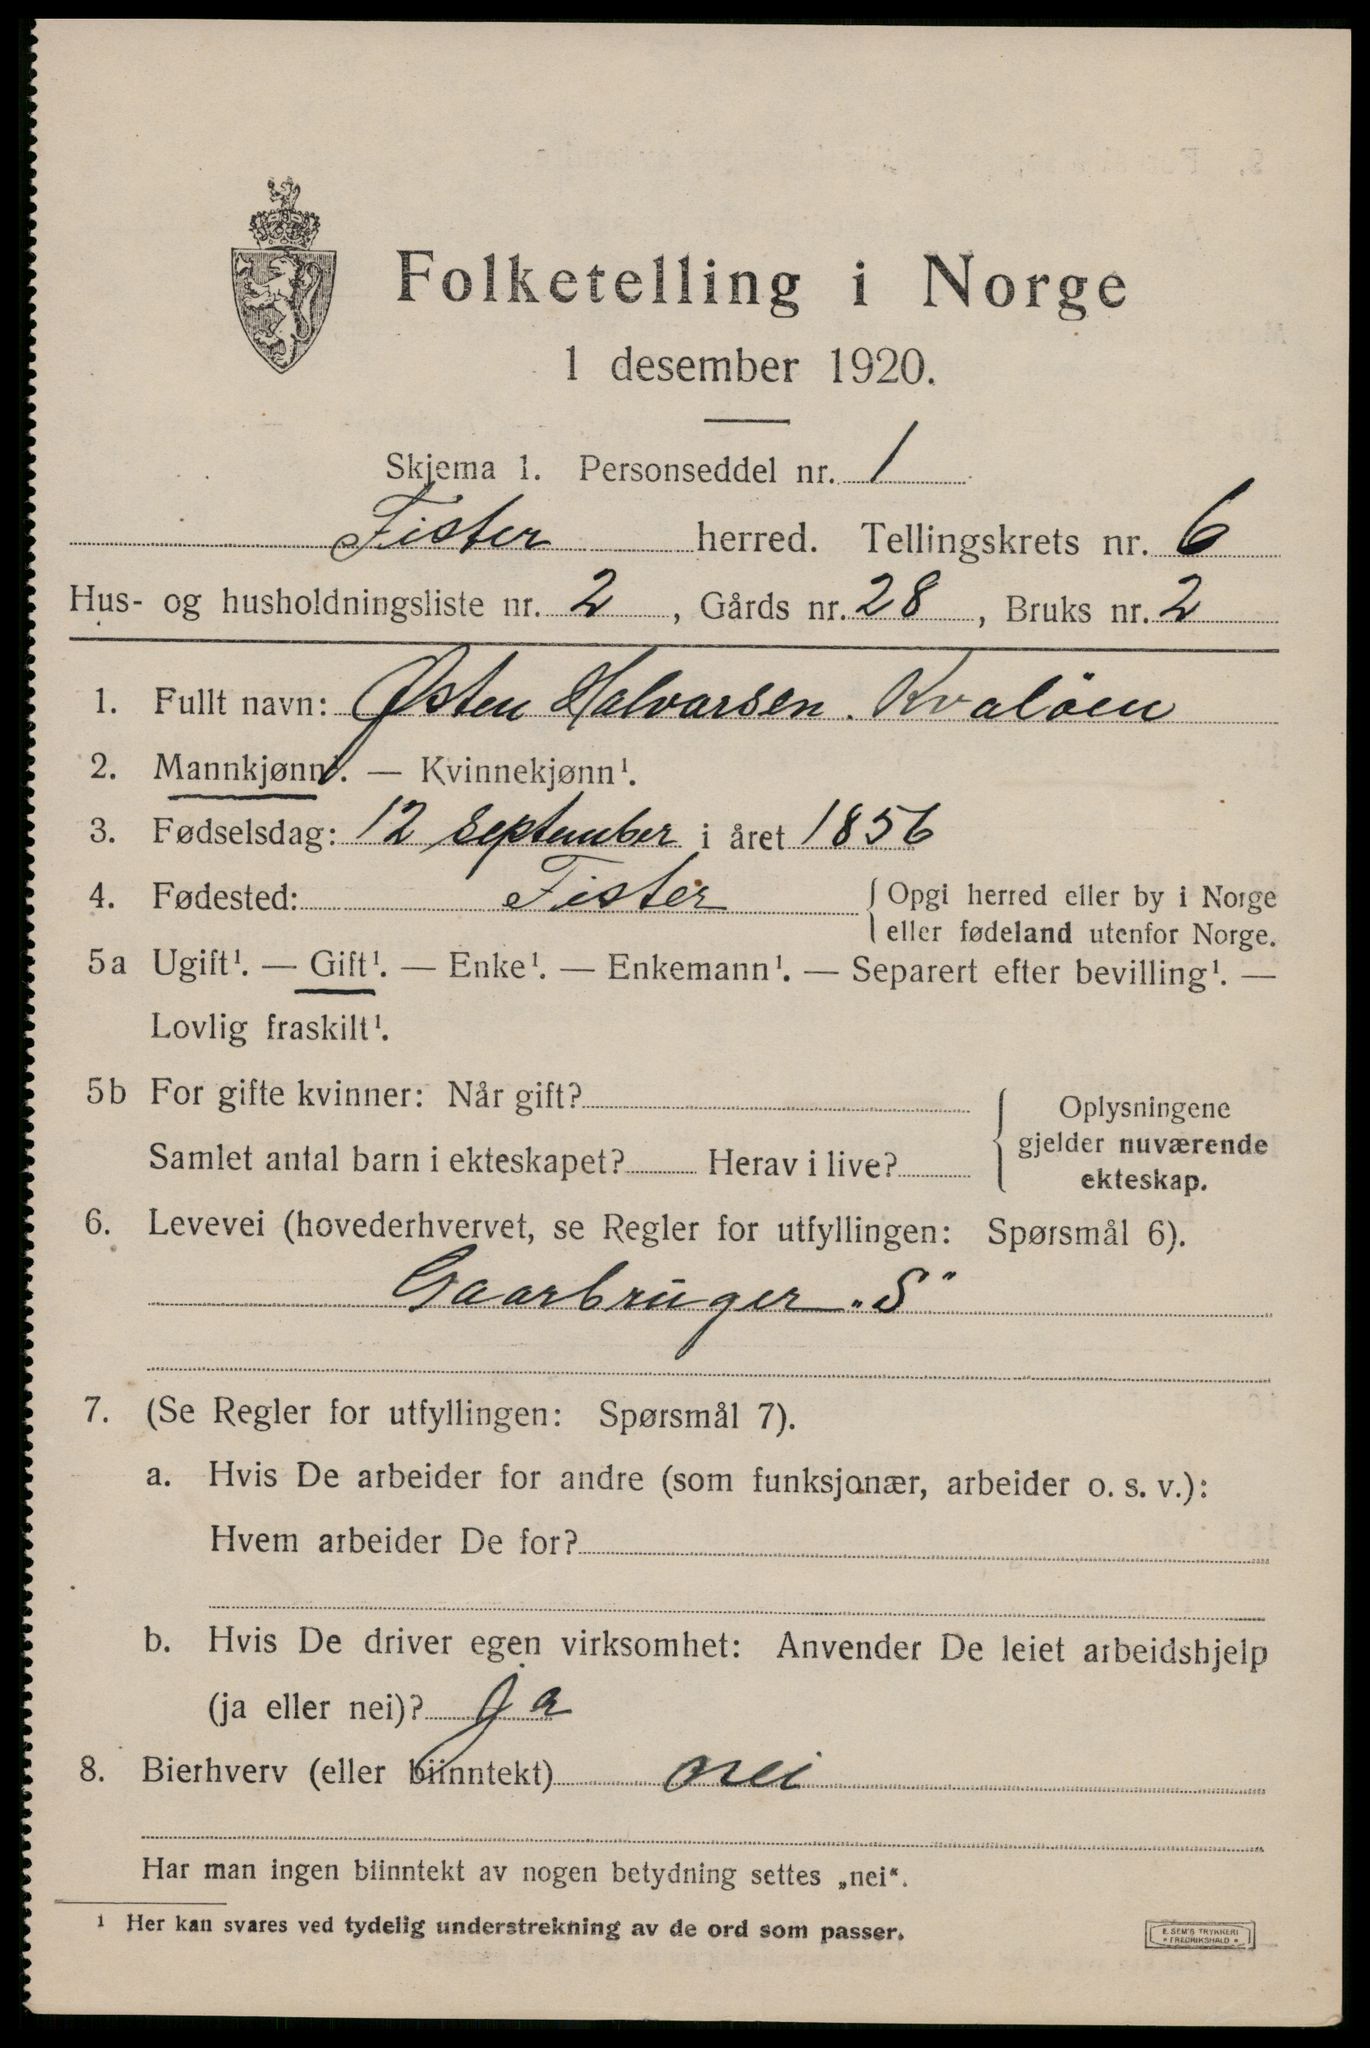 Folketelling i Norge
1 desember 1920.
Skjema 1. Personseddel nr. 1
Fister herred. Tellingskrets nr. 6
Hus- og husholdningsliste nr. 2, Gårds nr. 28, Bruks nr. 2
1. Fullt navn: Østen Halvarsen. Kvaløen
2. Mannkjønn¹. — Kvinnekjønn¹.
3. Fødselsdag: 12 september i året 1856
4. Fødested: Fister { Opgi herred eller by i Norge
eller fødeland utenfor Norge.
5a Ugift¹. — Gift¹. — Enke¹. — Enkemann¹. — Separert efter bevilling¹. —
Lovlig fraskilt¹.
5b For gifte kvinner: Når gift? { Oplysningene
gjelder nuværende
Samlet antal barn i ekteskapet? Herav i live? ekteskap.
6. Levevei (hovederhvervet, se Regler for utfyllingen: Spørsmål 6).
Gaarbruger „S"
7. (Se Regler for utfyllingen: Spørsmål 7).
a. Hvis De arbeider for andre (som funksjonær, arbeider o. s. v.):
Hvem arbeider De for?
b. Hvis De driver egen virksomhet: Anvender De leiet arbeidshjelp
(ja eller nei)? Ja
8. Bierhverv (eller biinntekt) nei
Har man ingen biinntekt av nogen betydning settes „nei".
¹ Her kan svares ved tydelig understrekning av de ord som passer.
E. SEM'S TRYKKERI
FREDRIKSHALD